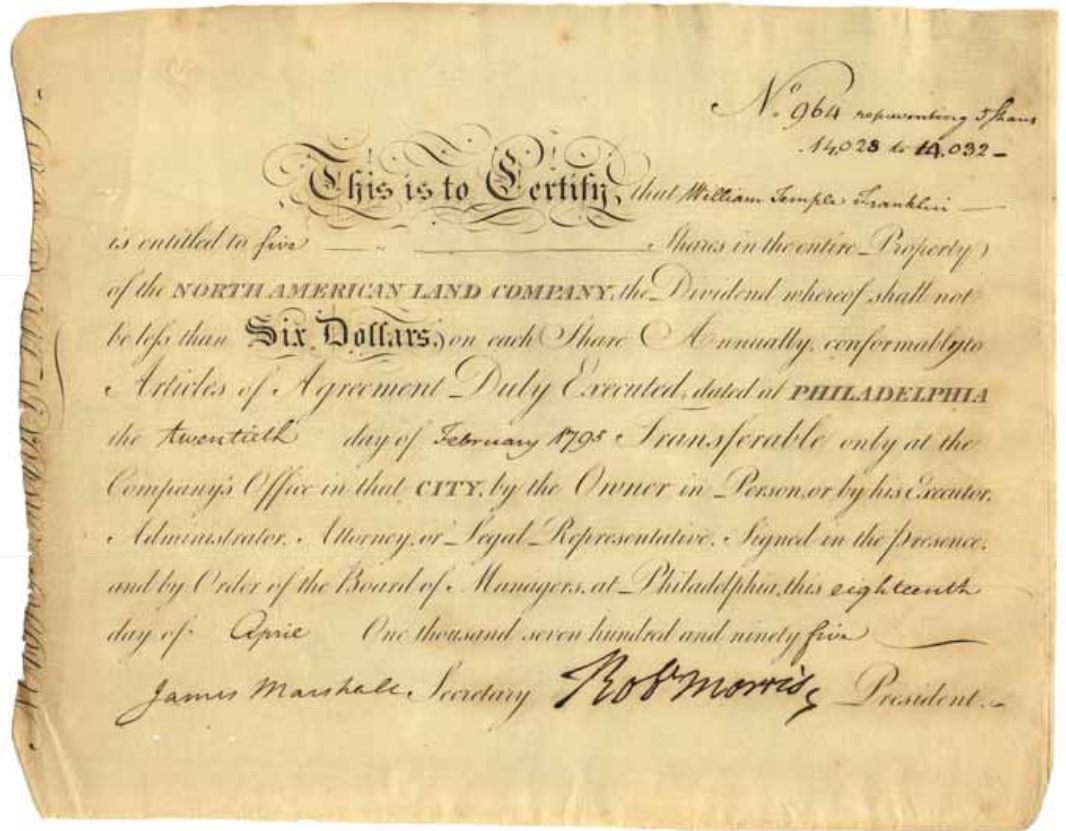 No. 964 representing 5 Shares
14,028 to 14,032 –
This is to Certify, that William Temple Franklin
is entitled to five Shares in the entire Property
of the NORTH AMERICAN LAND COMPANY, the Dividend whereof shall not
be less than Six Dollars, on each Share Annually, conformably to
Articles of Agreement Duly Executed, dated at PHILADELPHIA
the twentieth day of February 1795 Transferable only at the
Company's Office in that CITY, by the Owner in Person, or by his Executor,
Administrator, Attorney, or Legal Representative. Signed in the presence,
and by Order of the Board of Managers, at Philadelphia, this eighteenth
day of April One thousand seven hundred and ninety five
James Marshall Secretary Robt Morris President.